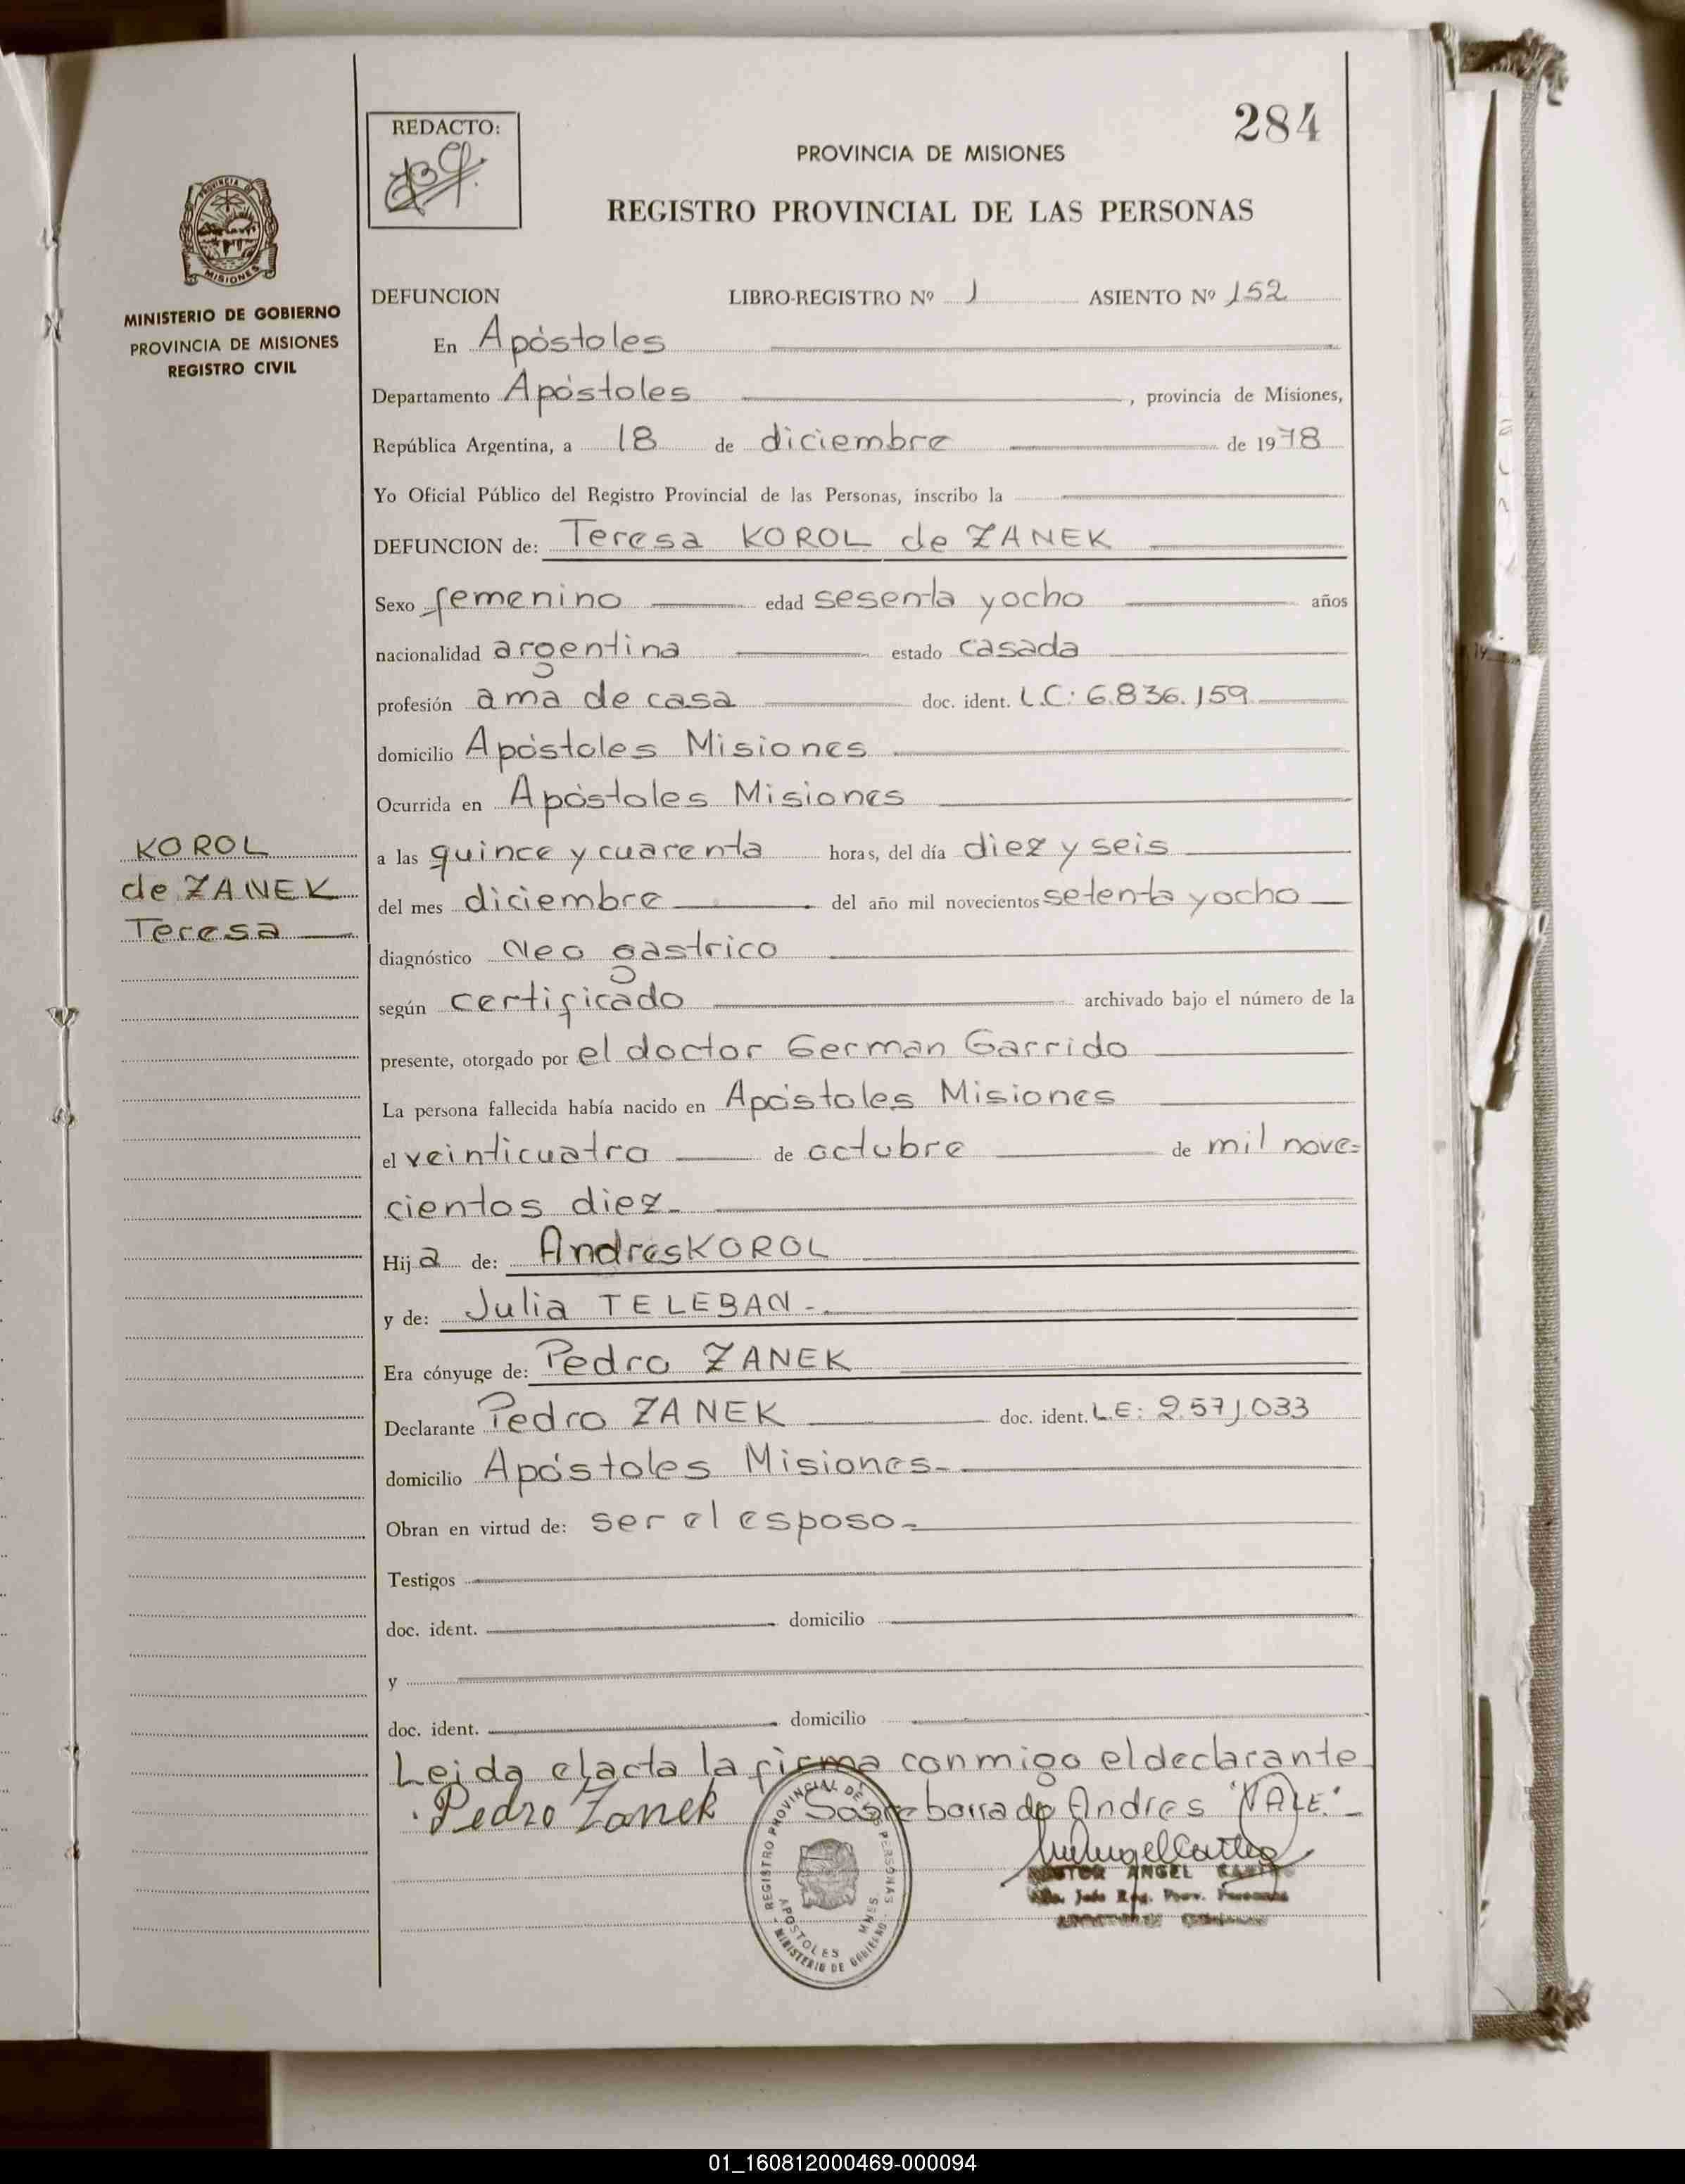 284
REDACTO:
PROVINCIA DE MISIONES
REGISTRO PROVINCIAL DE LAS PERSONAS
PROVINCIA DE
MISIONES
MINISTERIO DE GOBIERNO
PROVINCIA DE MISIONES
REGISTRO CIVIL
DEFUNCION LIBRO-REGISTRO Nº 1 ASIENTO Nº 152
En Apóstoles
Departamento Apóstoles , provincia de Misiones,
República Argentina, a 18 de diciembre de 1978
Yo Oficial Público del Registro Provincial de las Personas, inscribo la
DEFUNCION de: Teresa KOROL de ZANEK
Sexo femenino edad sesenta y ocho años
nacionalidad argentina estado casada
profesión ama de casa doc. ident. L.C: 6.836.159
domicilio Apóstoles Misiones
Ocurrida en Apóstoles Misiones
KOROL
de ZANEK
Teresa
a las quince y cuarenta horas, del día diez y seis
del mes diciembre del año mil novecientos setenta y ocho
diagnóstico Neo gastrico
según certificado archivado bajo el número de la
presente, otorgado por el doctor German Garrido
La persona fallecida había nacido en Apóstoles Misiones
el veinticuatro de octubre de mil nove=
cientos diez.
Hija de: Andres KOROL
y de: Julia TELEBAN.
Era cónyuge de: Pedro ZANEK
Declarante Pedro ZANEK doc. ident. L.E: 2.571.033
domicilio Apóstoles Misiones
Obran en virtud de: ser el esposo
Testigos
doc. ident. domicilio
y
doc. ident. domicilio
Leida el acta la firma conmigo el declarante
Pedro Zanek Sobre borrado Andres "VALE".
REGISTRO PROVINCIAL DE LAS PERSONAS
APOSTOLES MNES.
MINISTERIO DE GOBIERNO
ANGEL
01_160812000469-000094